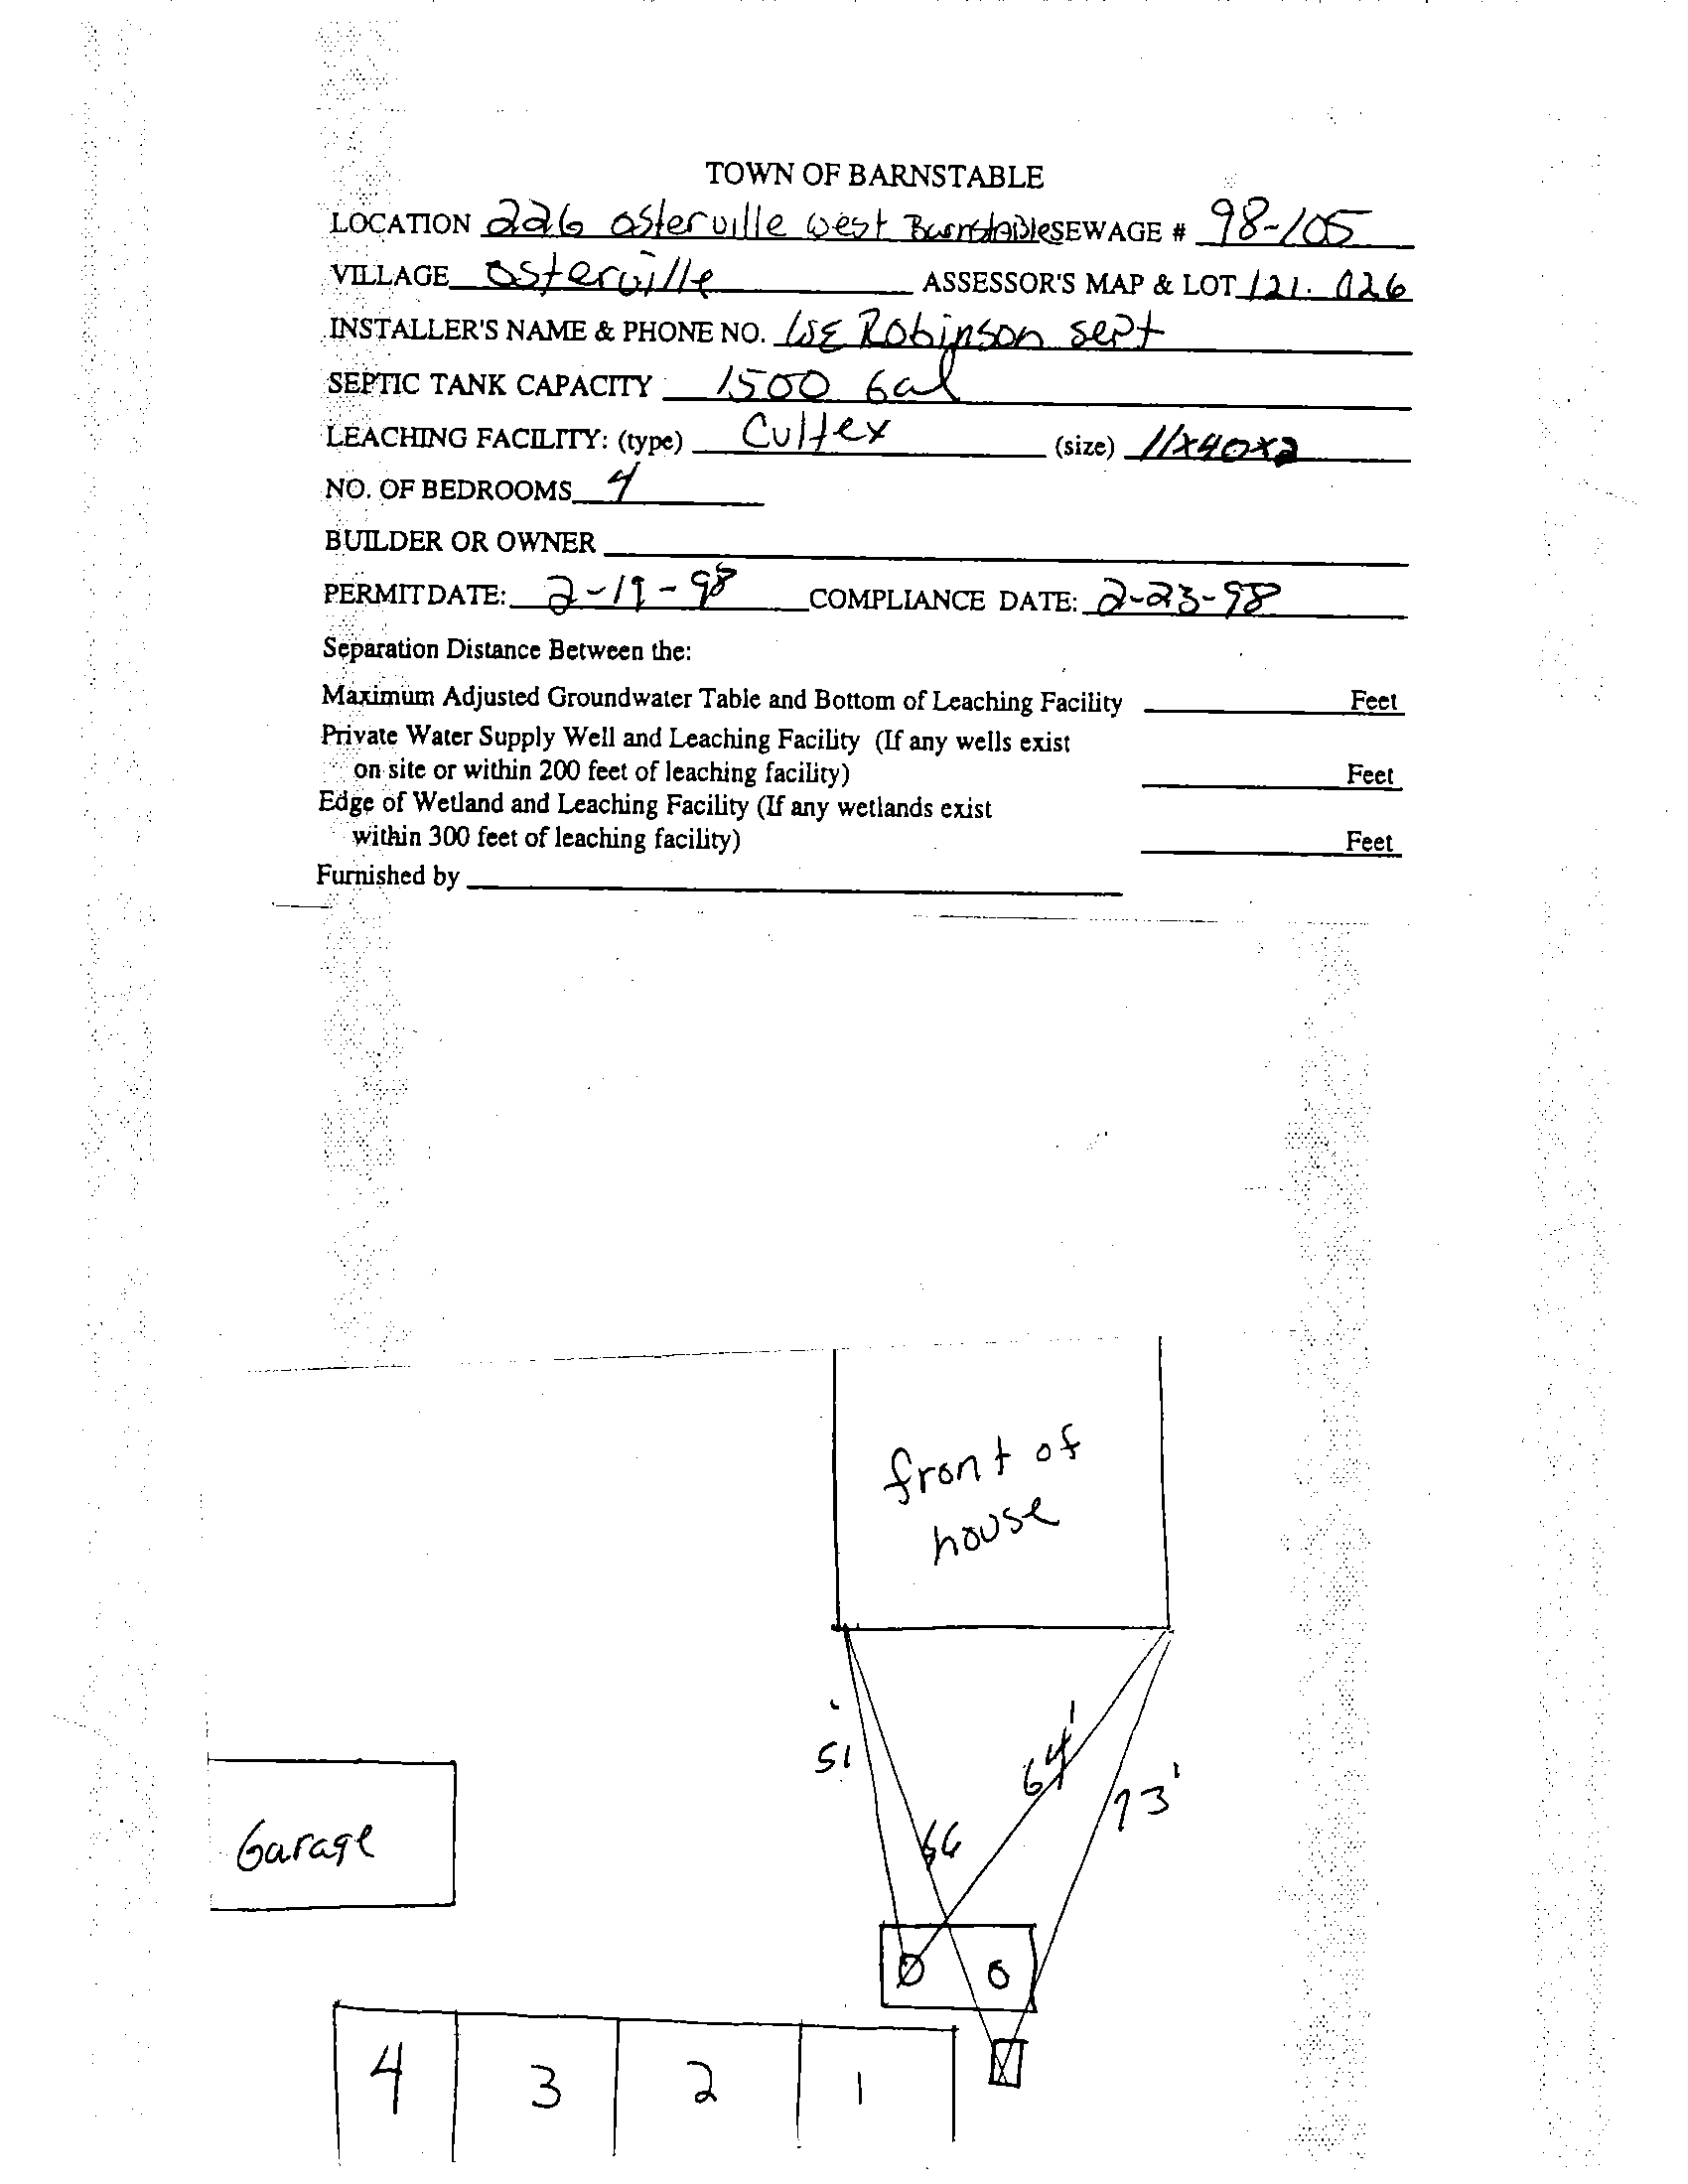 TOWN OF BARNSTABLE
LOCATION 226 Osterville West Barnstable SEWAGE # 98-105
VILLAGE Osterville ASSESSOR'S MAP & LOT 121. 026
INSTALLER'S NAME & PHONE NO. WE Robinson Sept
SEPTIC TANK CAPACITY 1500 Gal
LEACHING FACILITY: (type) Cultex (size) 11x40x2
NO. OF BEDROOMS 4
BUILDER OR OWNER
PERMIT DATE: 2-19-98 COMPLIANCE DATE: 2-23-98
Separation Distance Between the:
Maximum Adjusted Groundwater Table and Bottom of Leaching Facility Feet
Private Water Supply Well and Leaching Facility (If any wells exist
on site or within 200 feet of leaching facility) Feet
Edge of Wetland and Leaching Facility (If any wetlands exist
within 300 feet of leaching facility) Feet
Furnished by
front of
house
51'
64'
73'
66
Garage
4 3 2 1